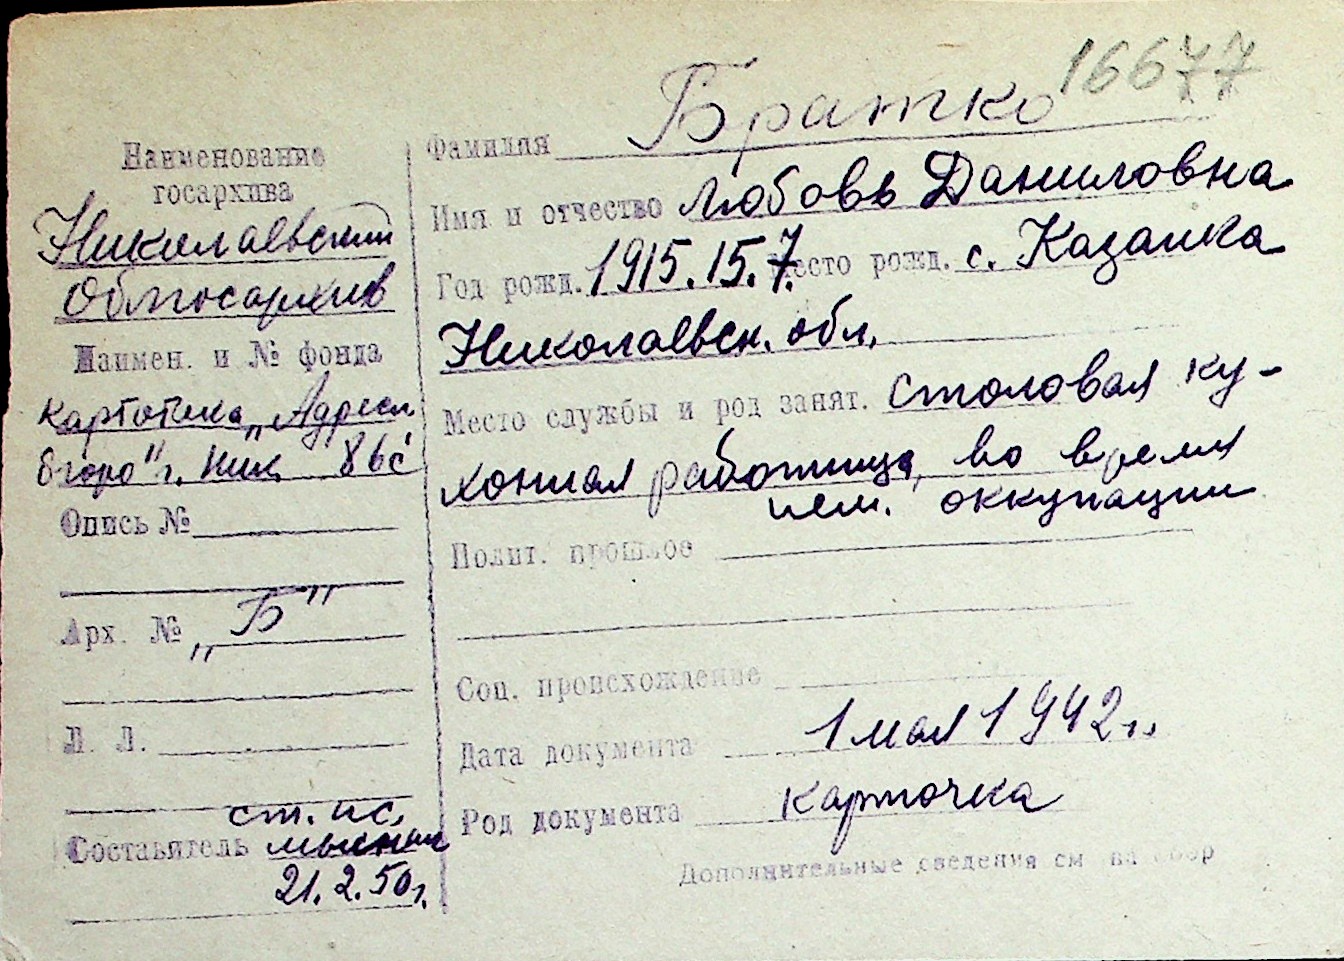 16677
Наименование
госархива
Николаевский
Облгосархив
Наимен. и № фонда
картотека „Адресн
бюро" г. Ник 86с
Опись №
Арх. № „Б"
Л. Л.
ст. ис.
Составитель
21.2.50г.
Фамилия Братко
Имя и отчество Любовь Даниловна
Год рожд. 1915.15.7. Место рожд. с. Казанка
Николаевск. обл.
Место службы и род занят. столовая ку-
хонная работница, во время
нем. оккупации
Полит. прошлое
Соц. происхождение
Дата документа 1 мая 1942г.
Род документа карточка
Дополнительные сведения см на обор